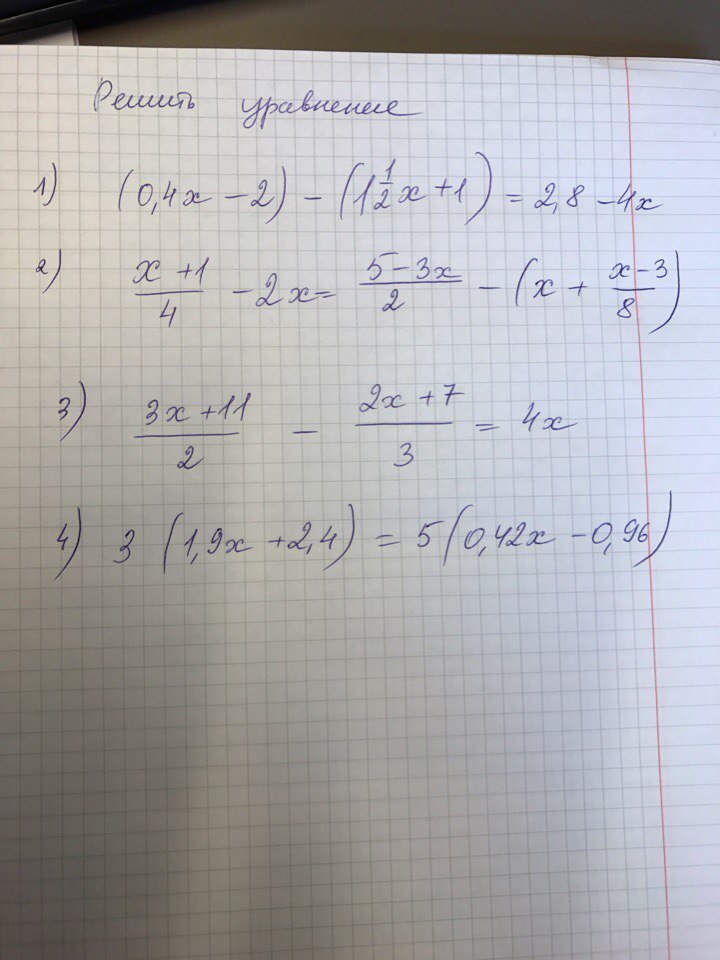 Решить уравнение
1) (0,4x - 2) - (1 1/2 x + 1) = 2,8 - 4x
2) (x + 1)/4 - 2x = (5 - 3x)/2 - (x + (x - 3)/8)
3) (3x + 11)/2 - (2x + 7)/3 = 4x
4) 3 (1,9x + 2,4) = 5 (0,42x - 0,96)